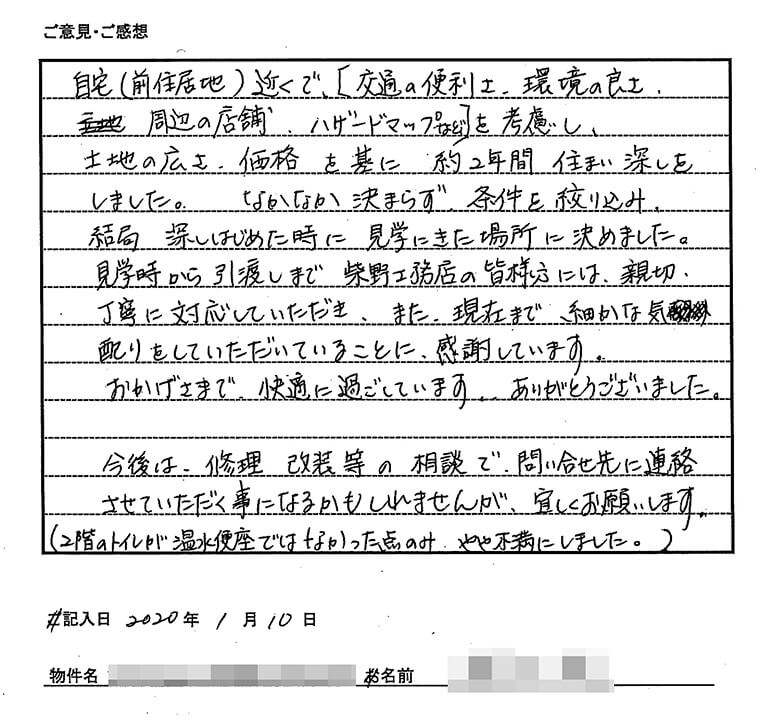 ご意見・ご感想
自宅(前住居地)近くで、[交通の便利さ、環境の良さ、
周辺の店舗、ハザードマップなど]を考慮し、
土地の広さ、価格を基に 約2年間 住まい深しを
しました。 なかなか決まらず、条件を絞り込み、
結局 深しはじめた時に 見学にきた場所に決めました。
見学時から引渡しまで 柴野工務店の皆様方には、親切、
丁寧に対応していただき、また、現在まで、細かな気
配りをしていただいていることに、感謝しています。
おかげさまで、快適に過ごしています。 ありがとうございました。
今後は、修理 改装等の相談で、問い合せ先に連絡
させていただく事になるかもしれませんが、宜しくお願いします。
(2階のトイレが温水便座ではなかった点のみ、やや不満にしました。)
記入日 2020年 1月 10日
物件名 お名前